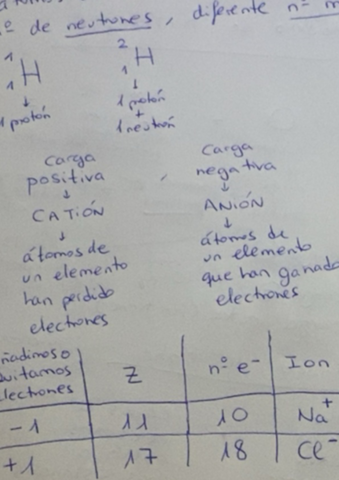 nº de neutrones, diferente nº
¹₁H ²₁H
↓ ↓
1 protón 1 protón
+
1 neutrón
Carga positiva , Carga negativa
↓ ↓
CATIÓN ANIÓN
↓ ↓
átomos de átomos de
un elemento un elemento
han perdido que han ganado
electrones electrones
añadimos o
quitamos Z nº e⁻ Ion
electrones
-1 11 10 Na⁺
+1 17 18 Cl⁻